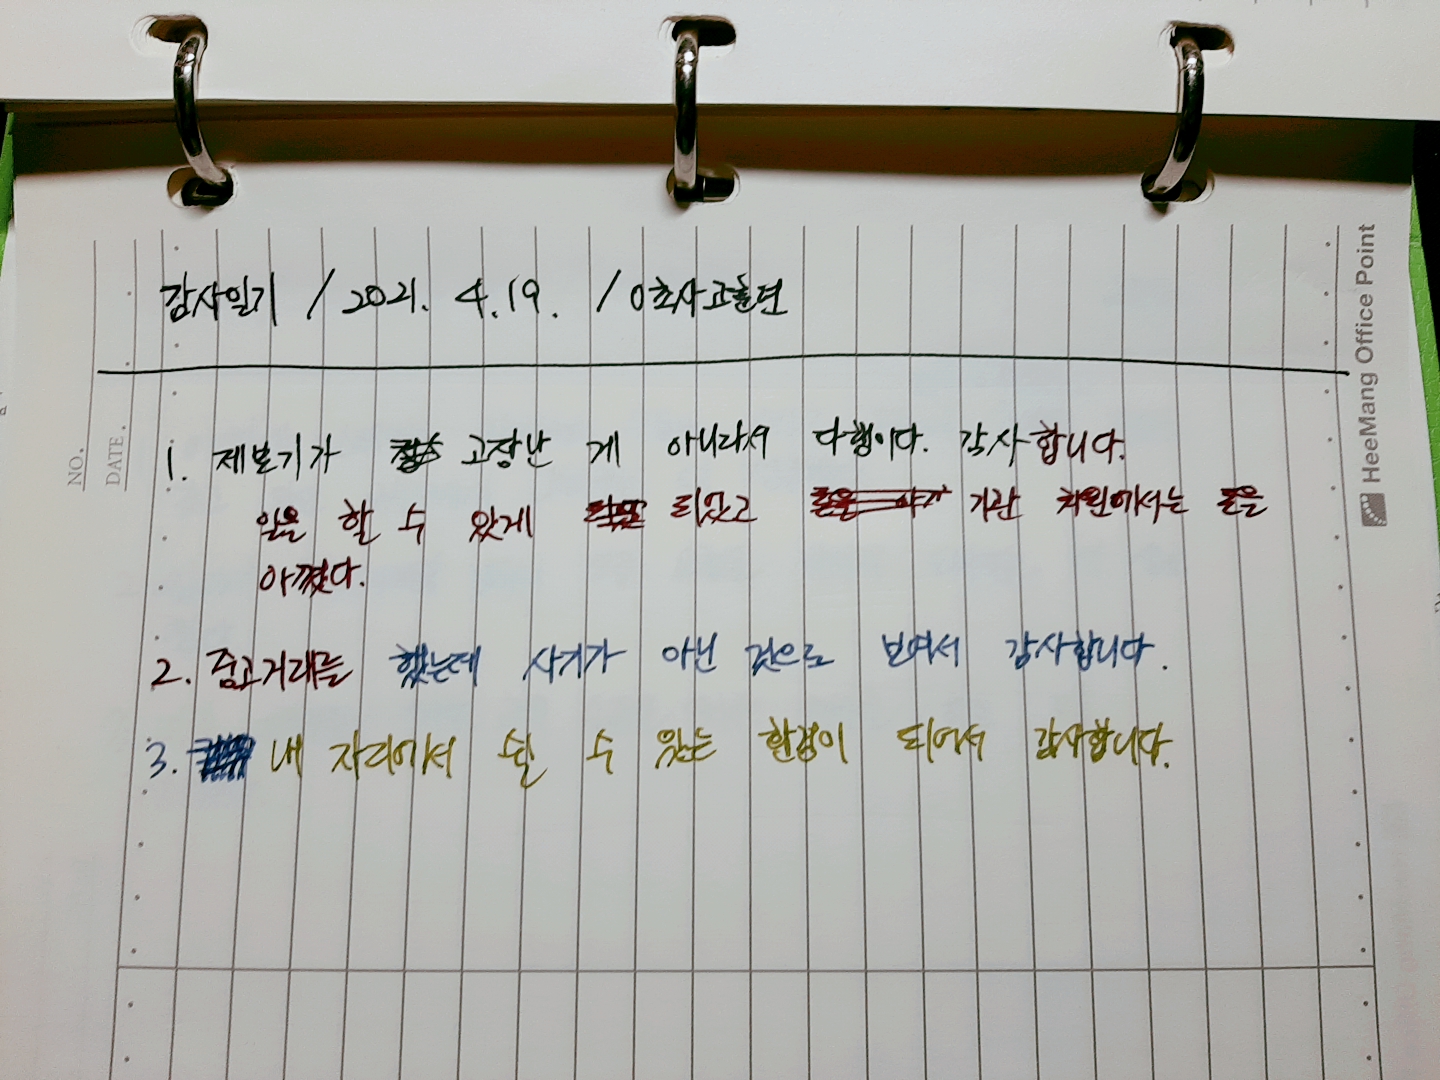 감사일기 / 2021. 4. 19. / 0초사고훈련
1. 제본기가 고장난 게 아니라서 다행이다. 감사합니다.
일을 할 수 있게 되었고 기관 차원에서는 돈을
아꼈다.
2. 중고거래를 했는데 사기가 아닌 것으로 보여서 감사합니다.
3. 내 자리에서 쉴 수 있는 환경이 되어서 감사합니다.
NO.
DATE.
HeeMang Office Point